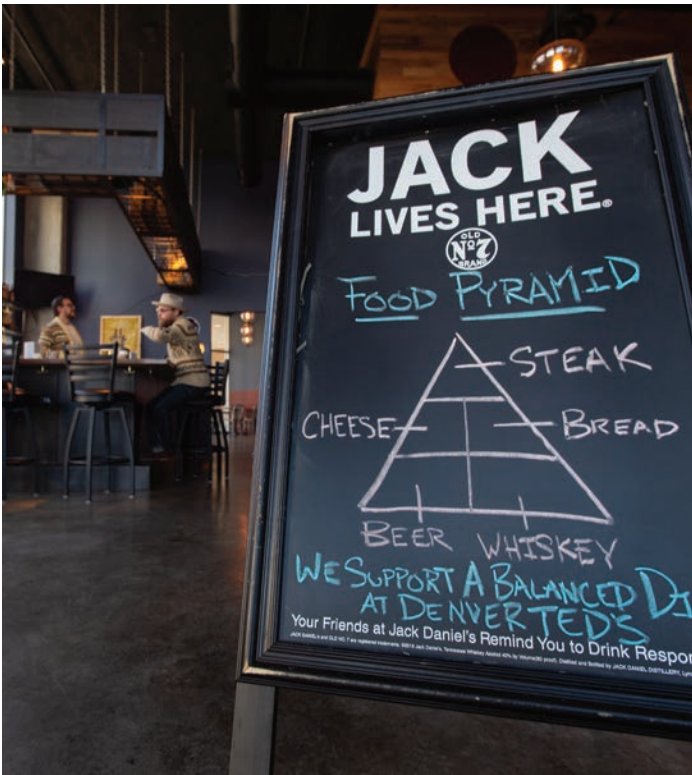 JACK
LIVES HERE.®
OLD
Nº7
BRAND
FOOD PYRAMID
STEAK
CHEESE BREAD
BEER WHISKEY
WE SUPPORT A BALANCED DI
AT DENVER TED'S
Your Friends at Jack Daniel's Remind You to Drink Respon